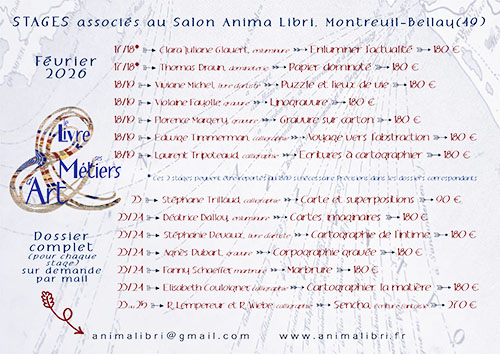 STAGES associés au Salon Anima Libri, Montreuil-Bellay (49)
Février
2026
17/18* Clara Juliane Glauert, enluminure Enluminer l'actualité 180 €
17/18* Thomas Braun, dominoterie Papier dominoté 180 €
18/19 Viviane Michel, livre d'artiste Puzzle et lieux de vie 180 €
18/19 Violaine Fayolle, gravure Linogravure 180 €
18/19 Florence gravure Gravure sur carton 180 €
18/19 Edwige Timmerman, calligraphie Voyage vers l'abstraction 180 €
18/19 Laurent calligraphie Ecritures à cartographier 180 €
* Ces 2 stages peuvent être reportés au 18/19 si nécessaire. Précisions dans les dossiers correspondants
le Livre
& des Métiers
d'Art
23 Stéphane calligraphie Carte et superpositions 90 €
23/24 Béatrice Balloy, enluminure Cartes imaginaires 180 €
23/24 Stéphanie livre d'artiste Cartographie de l'intime 180 €
23/24 Agnès Dubart, gravure gravée 180 €
23/24 Fanny Schaeffer, marbrure Marbrure 180 €
23/24 Elisabeth Couloigner, Cartographier la matière 180 €
R. Lempereur et R. Wiebe, calligraphie Sencha, 270 €
Dossier
complet
(pour chaque
stage)
sur demande
par mail
animalibri@gmail.com www.animalibri.fr